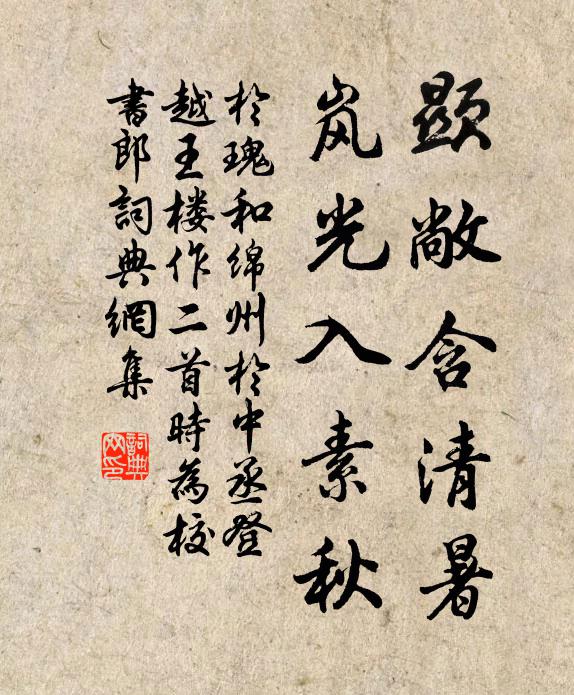 顕敞含清暑
岚光入素秋
於瑰和绵州於中丞登
越王楼作二首時為校
書郎詞典網集
詞典网印